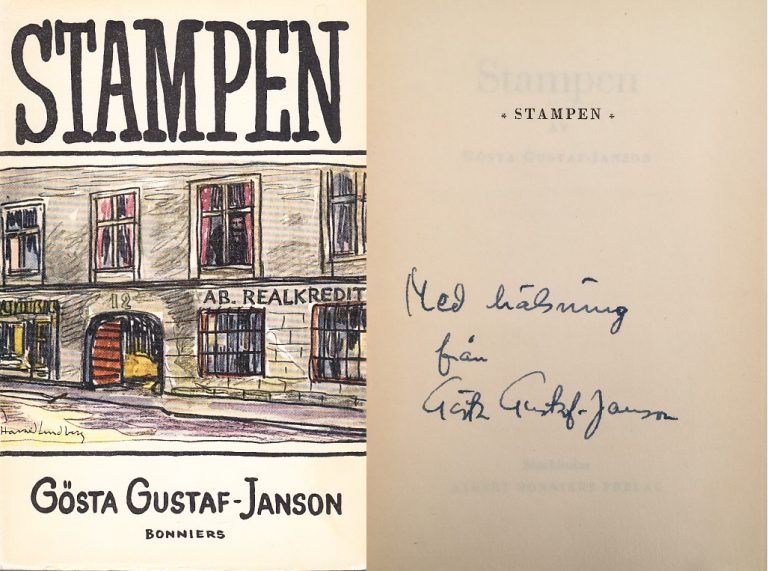 STAMPEN
12
AB. REALKREDIT
Harald Lindberg
GÖSTA GUSTAF-JANSON
BONNIERS
Stampen
* STAMPEN *
AV
GÖSTA GUSTAF-JANSON
Med hälsning
från
Gösta Gustaf-Janson
Stockholm
ALBERT BONNIERS FÖRLAG